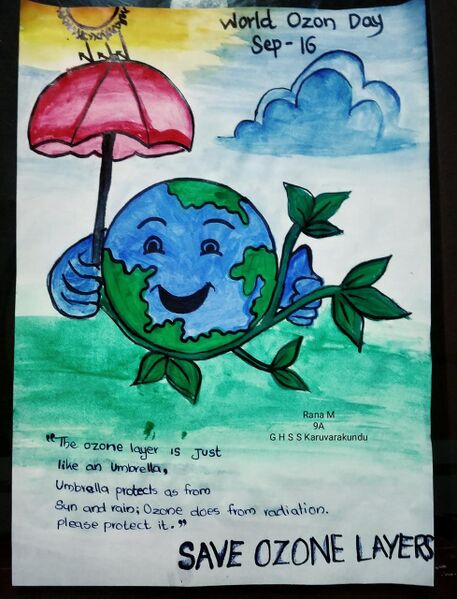 World Ozon Day
Sep-16
Rana M
9A
G H S S Karuvarakundu
"The ozone layer is just
like an Umbrella,
Umbrella protects as from
Sun and rain; Ozone does from radiation.
please protect it."
SAVE OZONE LAYERS